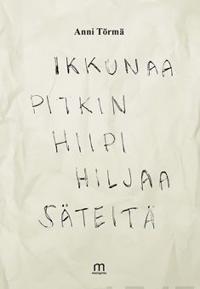 Anni Törmä
IKKUNAA
PITKIN
HIIPI
HILJAA
SÄTEITÄ
m